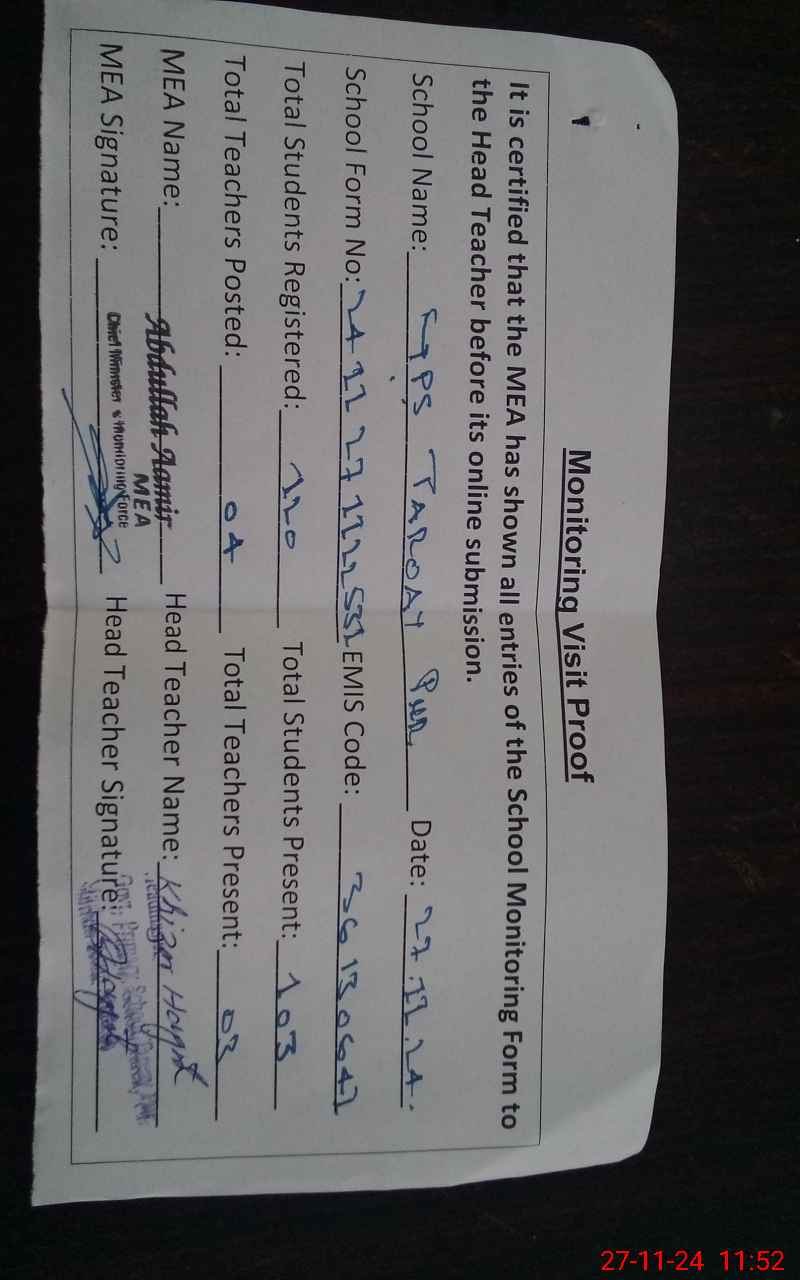 Monitoring Visit Proof
It is certified that the MEA has shown all entries of the School Monitoring Form to
the Head Teacher before its online submission.
School Name: GPS TAROAY Date: 27.11.24.
School Form No: EMIS Code:
Total Students Registered: 120 Total Students Present: 103
Total Teachers Posted: 04 Total Teachers Present:
MEA Name: Abdullah Aamir Head Teacher Name: Khizar Hayat
MEA
Chief Minister's Monitoring Force
MEA Signature: Head Teacher Signature:
Govt: Primary School
27-11-24 11:52